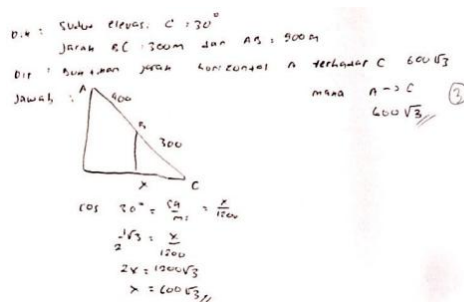 Dik : Sudut elevasi C = 30°
Jarak BC = 300m dan AB = 900m
Dit : Buktikan jarak horizontal A terhadap C 600√3
Jawab :
A
900
B
300
x
C
maka A → C
600√3
3
cos 30° = sa/mi = x/1200
1/2√3 = x/1200
2x = 1200√3
x = 600√3